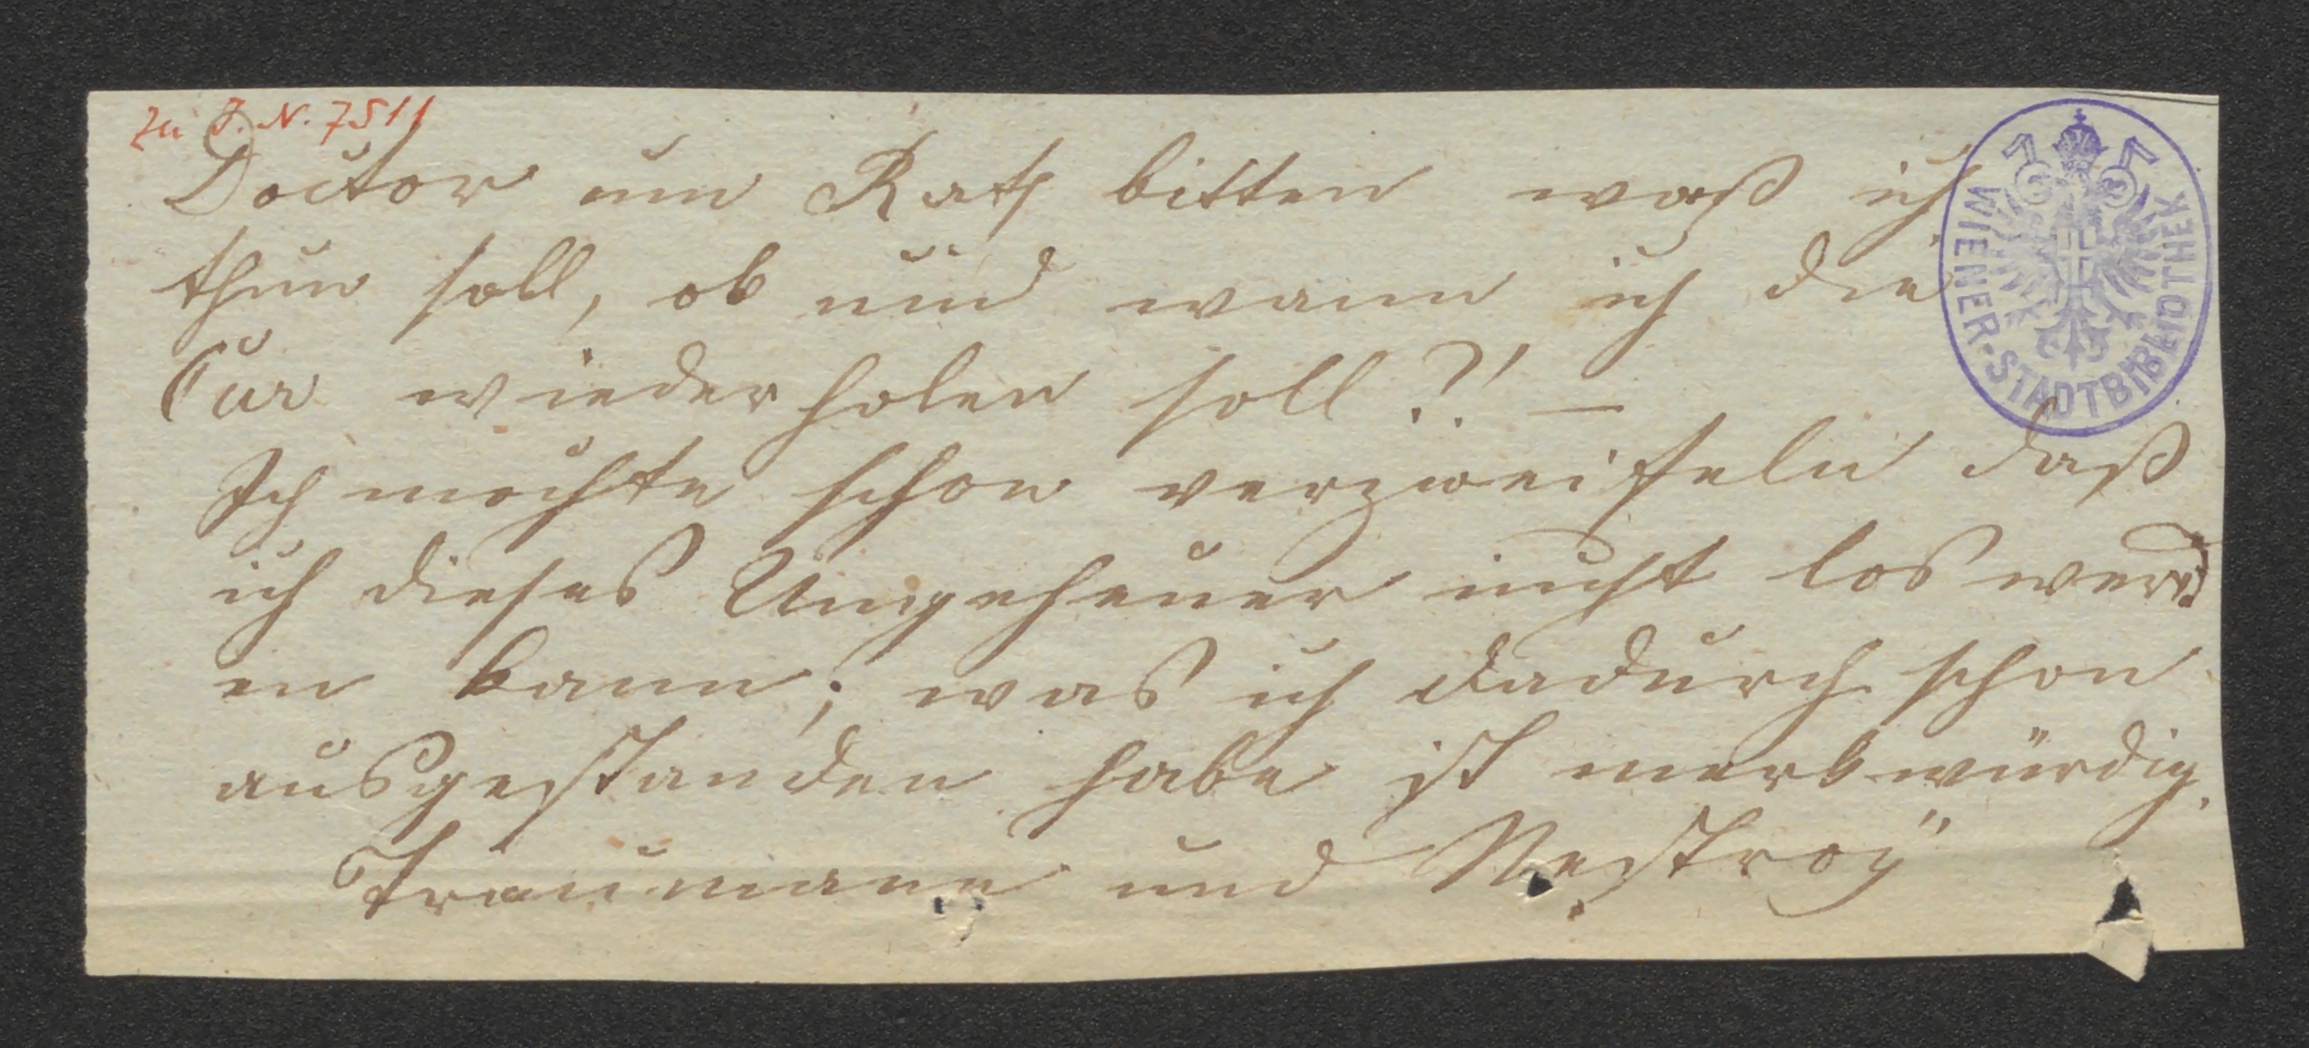 zu J. N. 7511
Doctor um Rath bitten waß ich
thun soll, ob und wann ich die
Cur wiederholen soll?! —
Ich möchte schon verzweifeln daß
ich dieses Ungeheuer nicht los werd
en kann; was ich dadurch schon
ausgestanden habe ist merkwürdig.
Traumann und Nestroÿ
WIENER-STADTBIBLIOTHEK